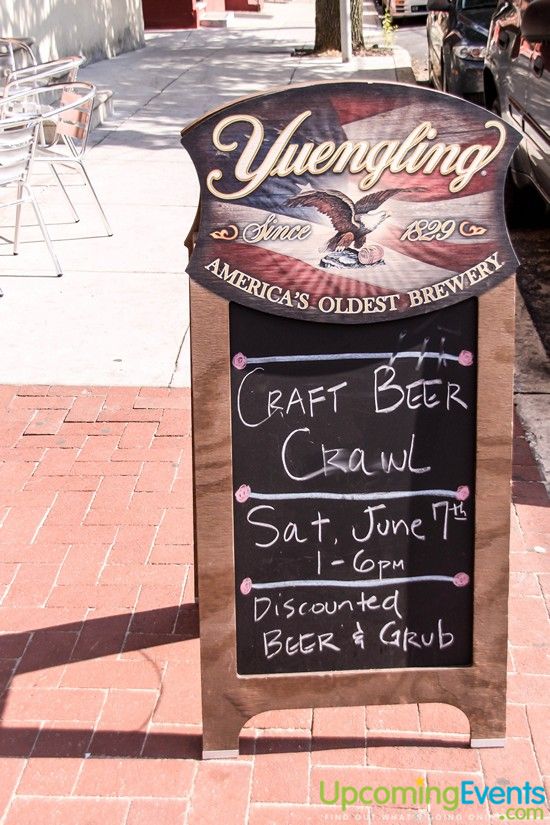 Yuengling
Since 1829
AMERICA'S OLDEST BREWERY
CRAFT BEER
CRAWL
SAT, JUNE 7th
1-6PM
DISCOUNTED
BEER & GRUB
UPCOMINGEVENTS.COM
FIND OUT WHAT'S GOING ON